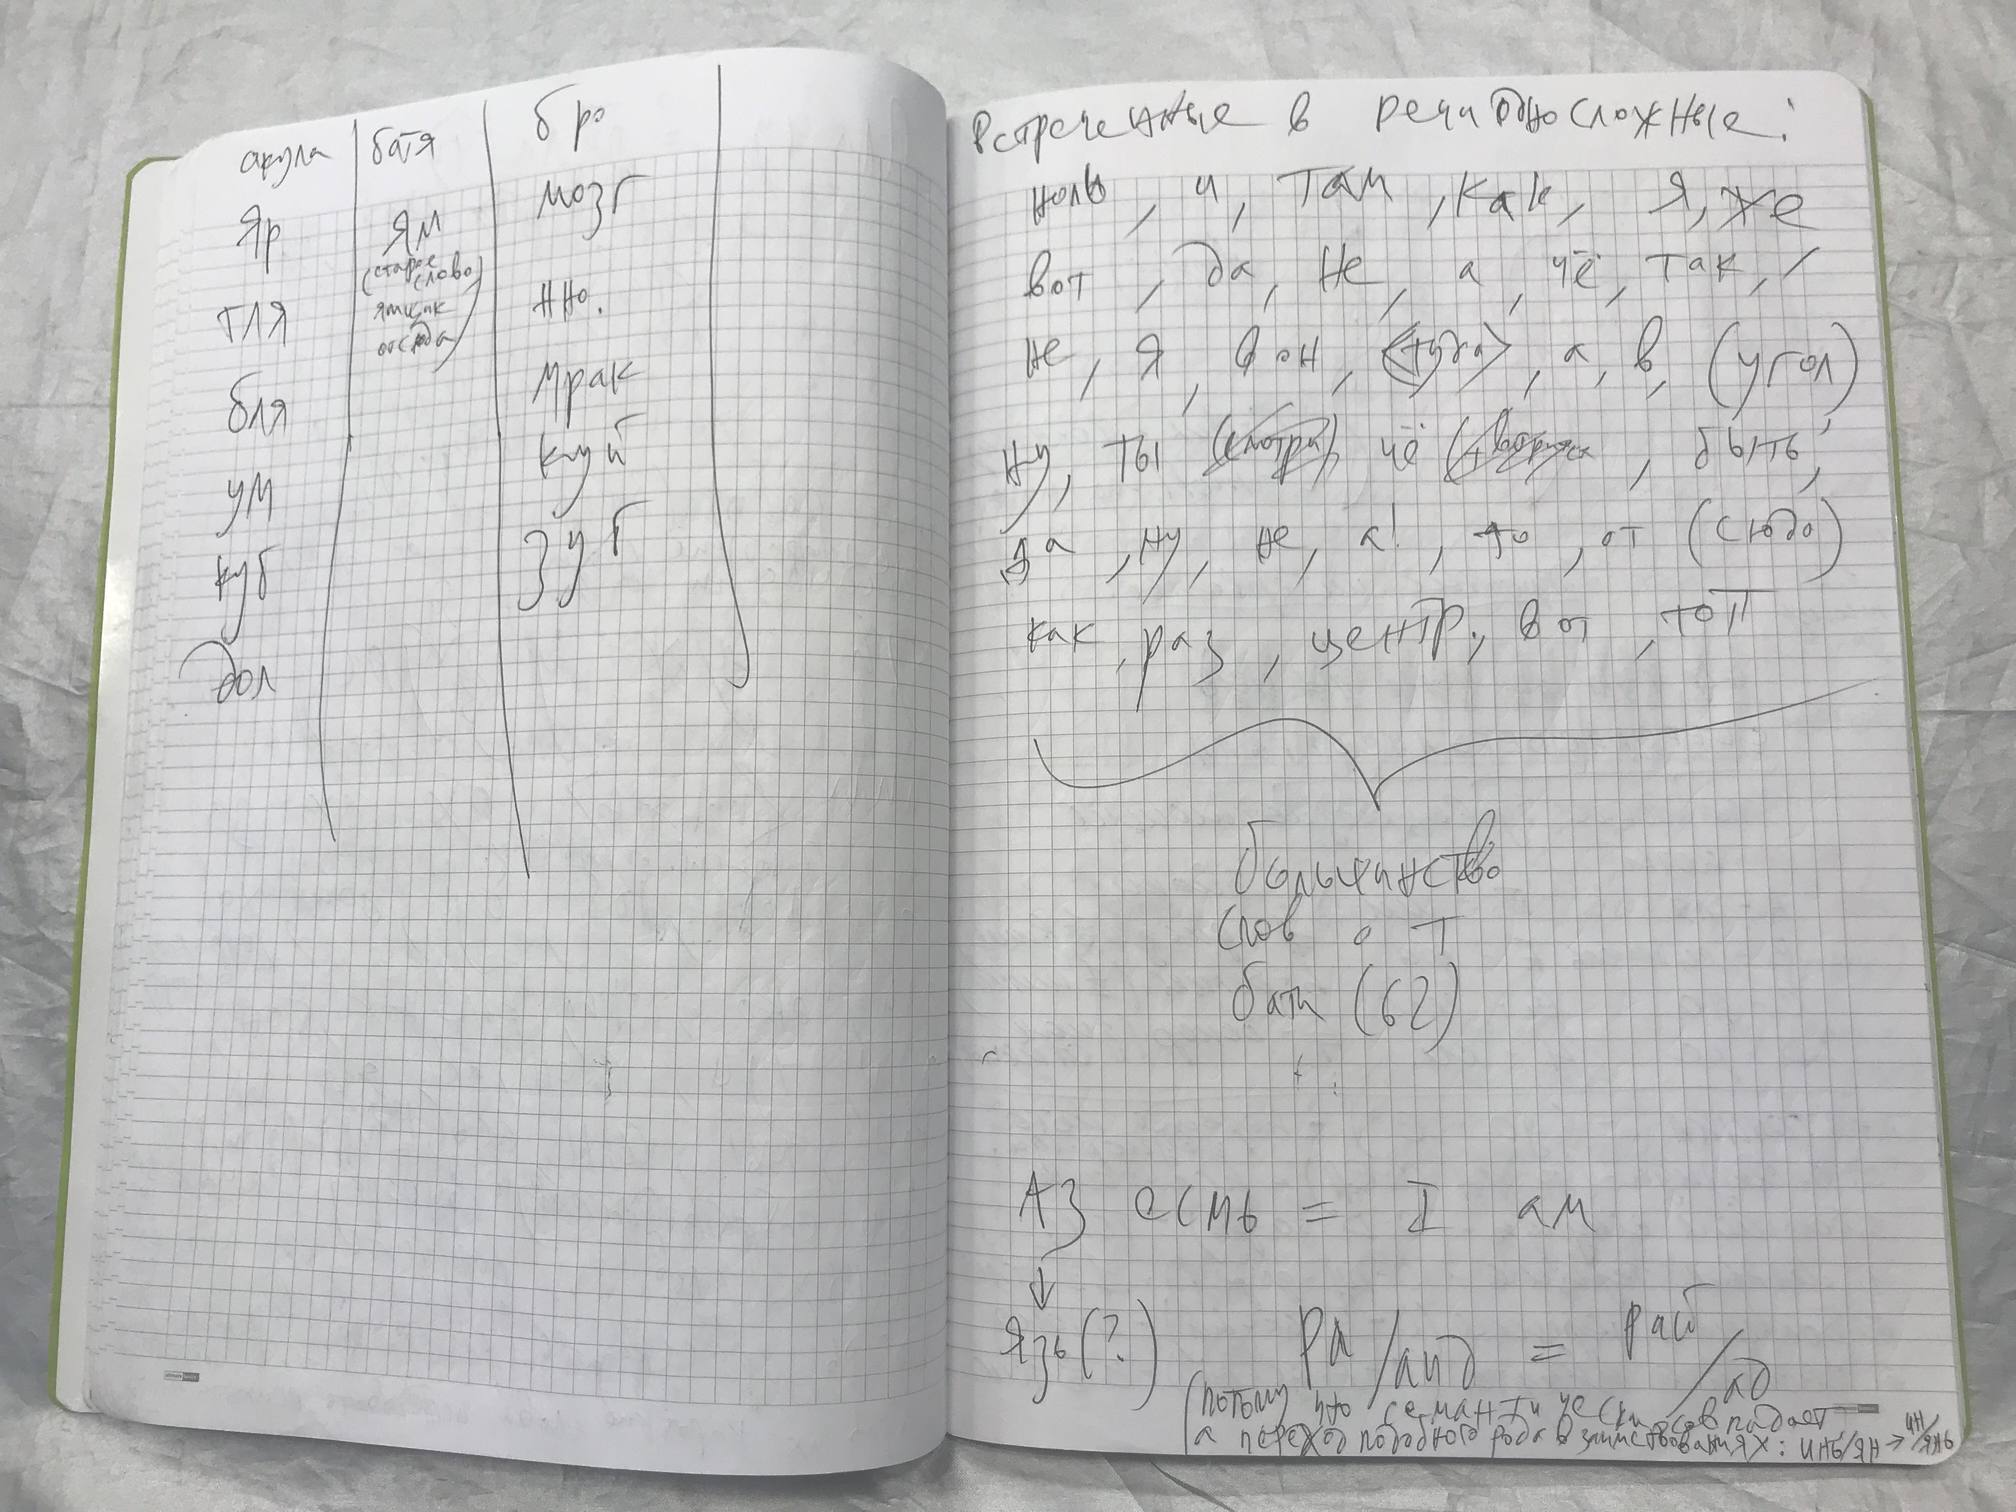 акула | батя | бро
яр
тля
бля
ум
куб
дол
ям
(старое
слово
ямщик
отсюда)
мозг
нно.
мрак
куй
зуб
Встреченные в речи односложные:
ноль, и, там, как, я, же
вот, да, не, а, чё, так,
не, я, вон, <туда>, а, в, (угол)
ну, ты (смотри), чё, быть,
да, ну, не, а!, то, от (сюдо)
как, раз, центр, вот, топ
большинство
слов от
бати (62)
Аз есмь = I ам
↓
язь (?)
ра/аид = рай/ад
(потому что семантически совпадает,
а переход подобного рода в заимствованиях: инь/ян → ин/янь